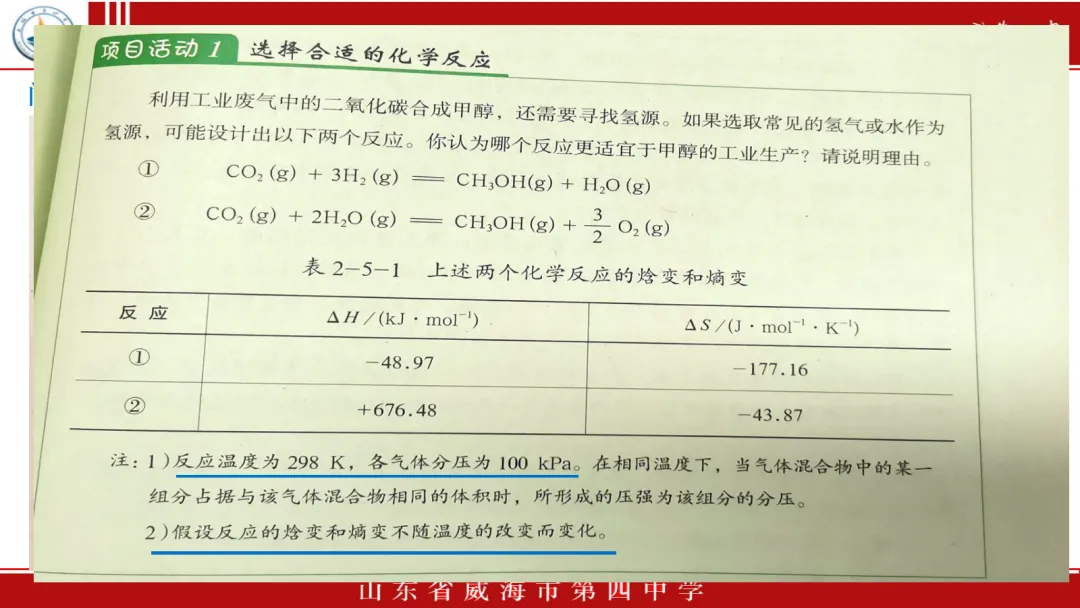 项目活动1 选择合适的化学反应
利用工业废气中的二氧化碳合成甲醇，还需要寻找氢源。如果选取常见的氢气或水作为
氢源，可能设计出以下两个反应。你认为哪个反应更适宜于甲醇的工业生产？请说明理由。
① CO₂(g) + 3H₂(g) ══ CH₃OH(g) + H₂O(g)
② CO₂(g) + 2H₂O(g) ══ CH₃OH(g) + 3/2 O₂(g)
表 2-5-1 上述两个化学反应的焓变和熵变
反应 ΔH/(kJ·mol⁻¹) ΔS/(J·mol⁻¹·K⁻¹)
① −48.97 −177.16
② +676.48 −43.87
注：1）反应温度为 298 K，各气体分压为 100 kPa。在相同温度下，当气体混合物中的某一
组分占据与该气体混合物相同的体积时，所形成的压强为该组分的分压。
2）假设反应的焓变和熵变不随温度的改变而变化。
山东省威海市第四中学